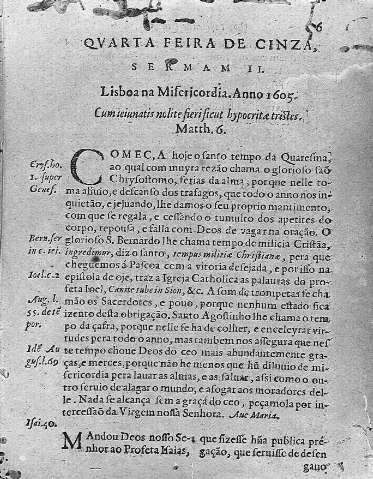 6
QVARTA FEIRA DE CINZA,
SERMAM II.
Lisboa na Misericordia. Anno 1605.
Cum ieiunatis nolite fieri sicut hypocritæ tristes.
Matth. 6.
COMEÇA hoje o santo tempo da Quaresma,
ao qual com muyta rezão chama o glorioso saõ
Chrysostomo, ferias da alma, porque nelle to-
ma aliuio, e descanso dos trafagos, que todo o anno nos in-
quietão, e jejuando, lhe damos o seu proprio mantimento,
com que se regala, e cessando o tumulto dos apetites do
corpo, repousa, e falla com Deos de vagar na oração. O
glorioso S. Bernardo lhe chama tempo de milicia Cristãa,
ingredimur, diz o santo, tempus militiæ Christianæ, pera que
cheguemos á Pascoa com a vitoria desejada, e por isso na
epistola de oje, traz a Igreja Catholica as palauras do pro-
feta Ioel, Canite tuba in Sion, &c. A som de trompetas se cha-
mão os Sacerdotes, e pouo, porque nenhum estado fica
izento desta obrigação. Santo Agostinho lhe chama o tem-
po da çafra, porque nelle se ha de colher, e enceleyrar vir-
tudes pera todo o anno, mas tambem nos assegura que nes-
te tempo choue Deos do ceo mais abundantemente gra-
ças, e merces, porque não he menos que hũ diluuio de mi-
sericordia pera lauar as almas, e as saluar, assi como o ou-
tro seruio de alagar o mundo, e afogar aos moradores del-
le. Nada se alcança sem a graça do ceo, peçamola por in-
tercessaõ da Virgem nossa Senhora. Aue Maria.
Crys. ho.
1. super
Genes.
Bern. ser
Ioel. c. 2
Aug. l.
55. de té
por.
Idē Au
gus. l. 69
Isai. 40.
MAndou Deos nosso Se-
nhor ao Profeta Isaias,
que fizesse hũa publica pré-
gação, que seruisse de desen
gano